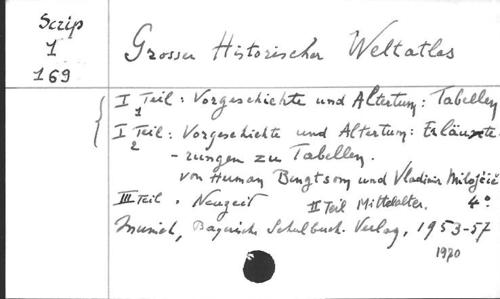 Scrip
1
169
Grosser Historischer Weltatlas
I 1 Teil : Vorgeschichte und Altertum : Tabellen
I 2 Teil : Vorgeschichte und Altertum : Erläute
- rungen zu Tabellen.
von Herman Bengtson und Vladimir Milojčić
III Teil . Neuzeit II Teil Mittelalter. 4°.
Munich, Bayerische Schulbuch. Verlag, 1953-57
1970